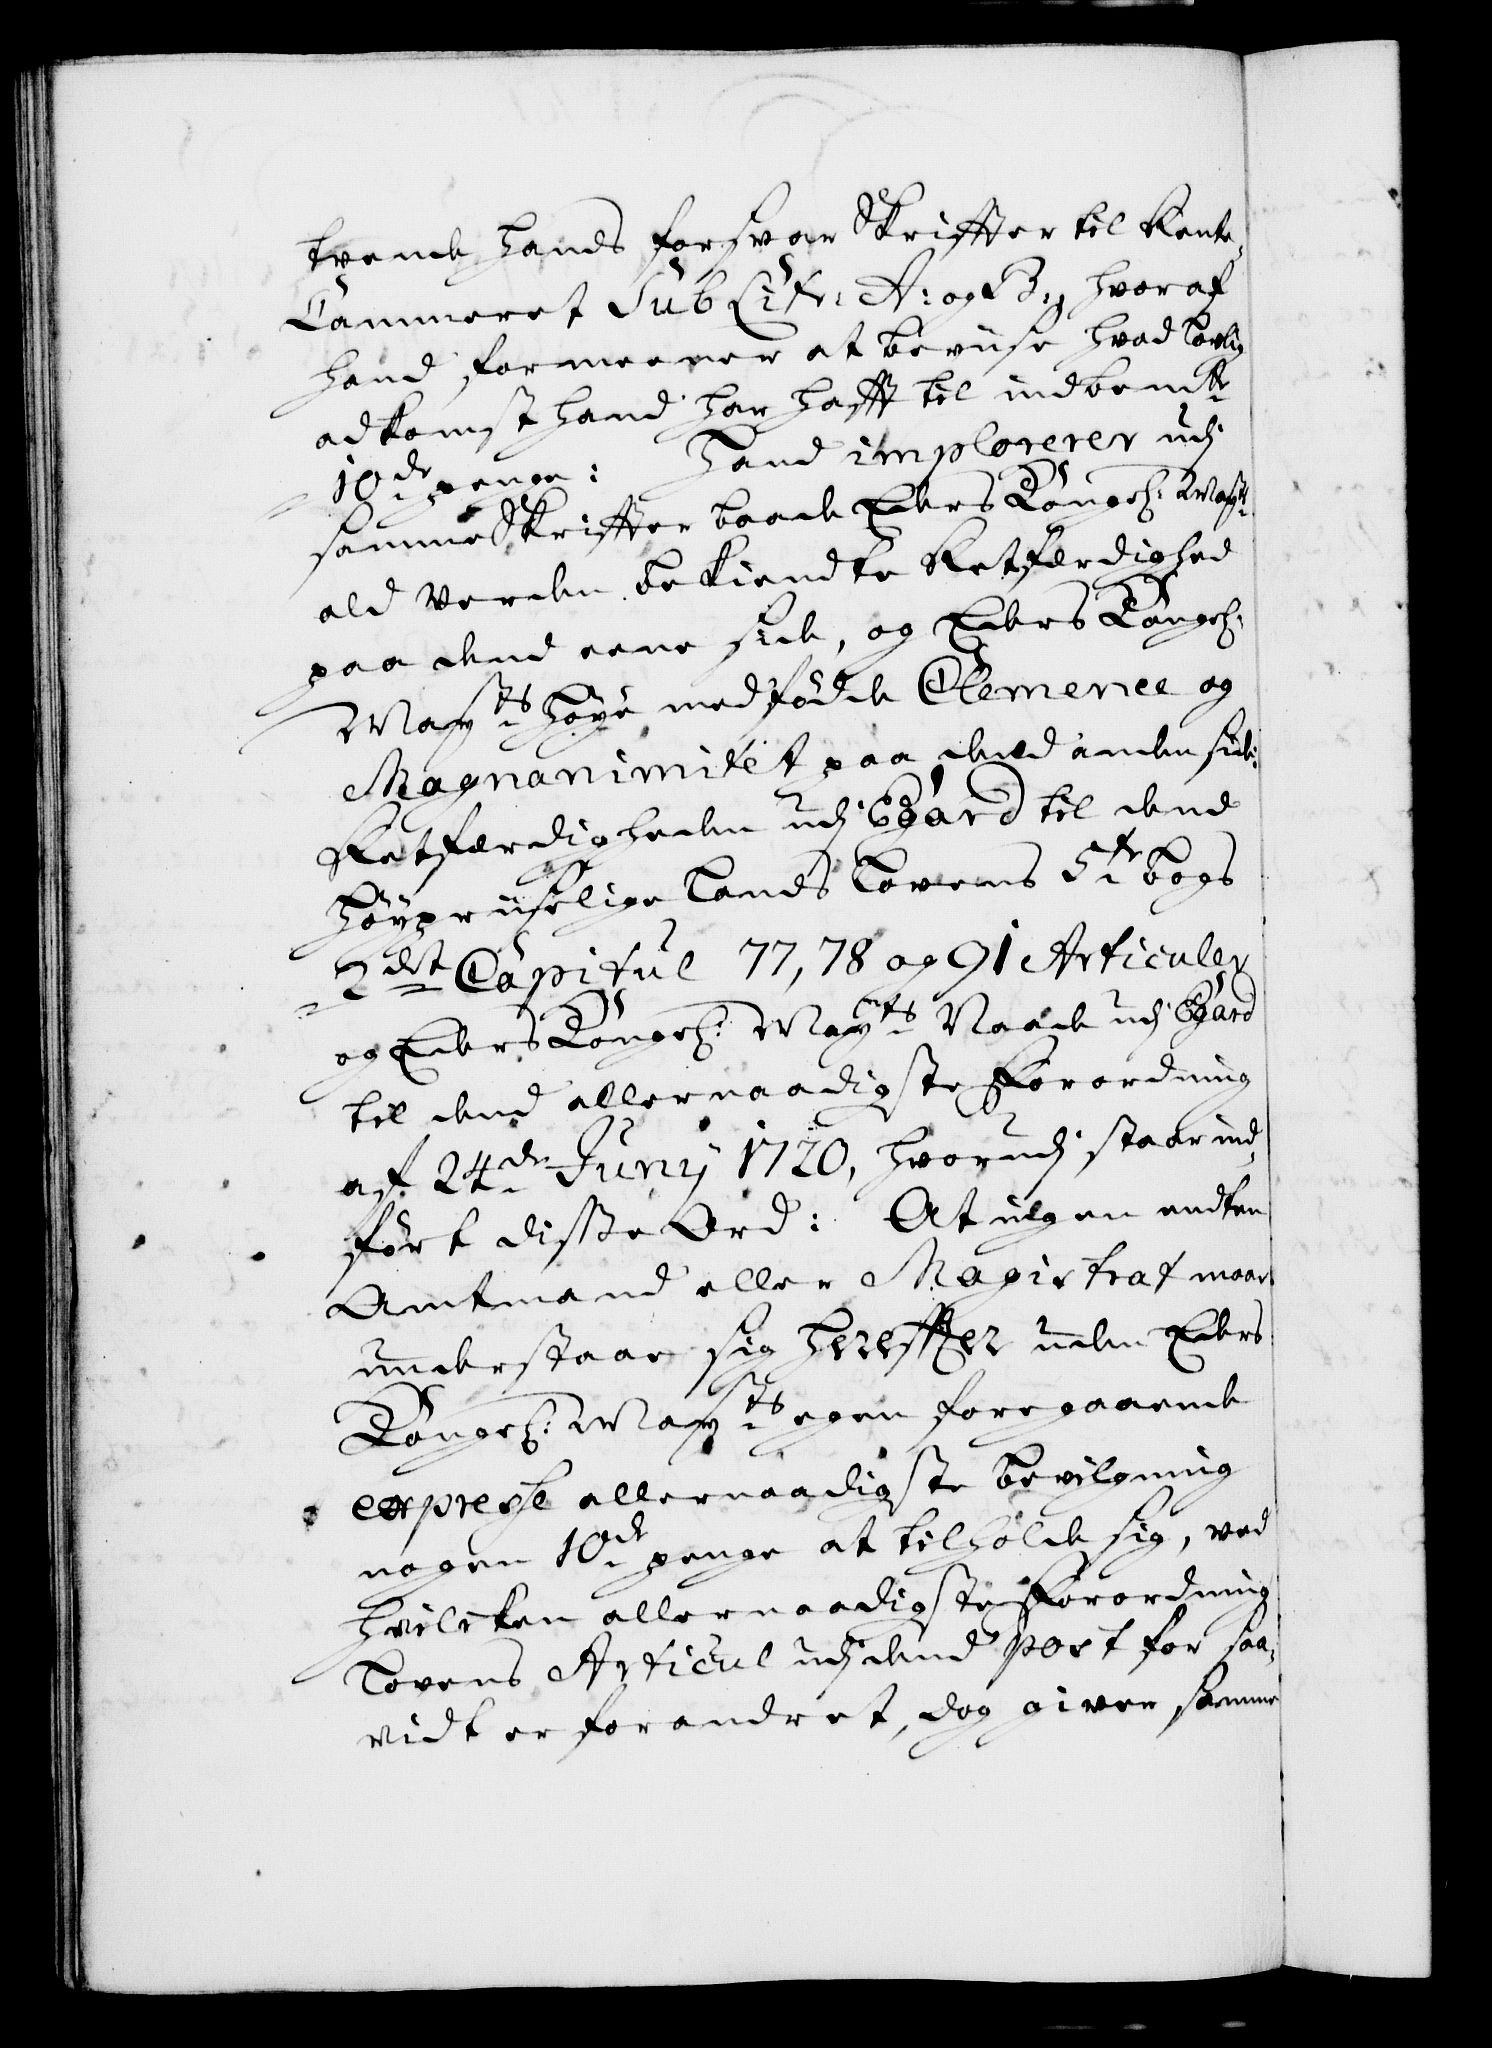 tvende hands forsvar Skriffter til Rente-
Cammeret Sub Litr: A: og B:, hvoraf
hand formeener at beviise hvad lovlig
adkomst hand har hafft til indbemte
10de penge: Hand implorerer udj
samme Skriffter baade Eders Kongel: Mayts
ald Verden bekiendte Retfærdighed
paa dend eene side, og Eders Kongel:
Mayts høye medfødde Clemence og
Magnanimitet paa dend anden side:
Retfærdigheden udj Egard til dend
høypriiselige Lands Lovens 5te bogs
2det Capitul 77, 78 og 91 Articuler
og Eders Kongel: Mayts Naade udj Egard
til dend allernaadigste Forordning
af 24de Junij 1720, hvorudj staar ind-
ført disse Ord: At ingen endten
Amtmand eller Magistrat maae
understaae sig hereffter uden Eders
Kongel: Mayts egen foregaaende
expresse allernaadigste bevilgning
nogen 10de penge at tilholde sig, ved
hvilcken allernaadigste Forordning
Lovens Articul udj dend post for saa-
vidt er forandret, dog giver samme